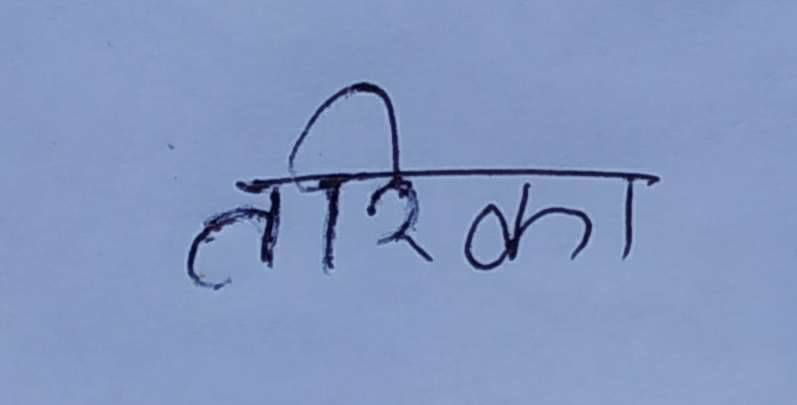 तरिका